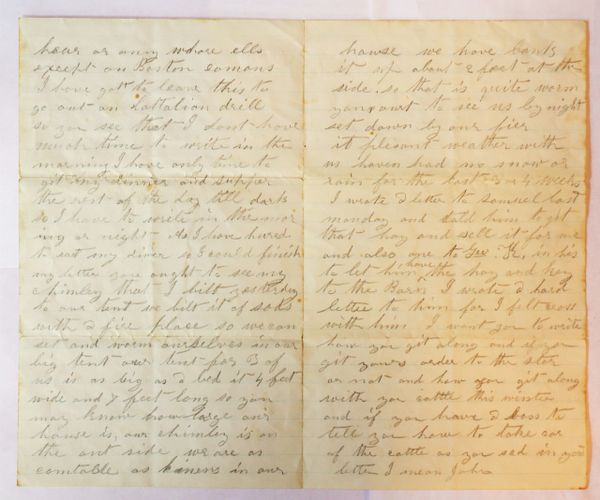 hear or anny whare ells
except on Boston comons
I have got to leave this to
go out on battalion drill
so you see that I dont have
much time to write in the
morning I have only time to
git my dinner and supper
the rest of the day till dark
so I have to write in the mor
ing or night As I have hured
to eat my diner so I could finish
my letter you ought to see my
chimley that I bilt yesterday
to our tent we bilt it of sods
with a fire place so we can
set and worm ourselves in our
big tent our tent for 3 of
us is as big as a bed it 4 feet
wide and 7 feet long so you
may know how large our
house is, our chimley is on
the out side we are as
comtable as in our
hawse we have bank
it up about 2 feet at the
side, so that is quite worm
you ourt to see us by night
set down by our fier
it plesent weather with
us haven had no snow or
rain for the last 3 - 4 weeks
I wrote a letter to Samuel last
monday and told him to get
that hay and sell it for me
and also one to Geo. in his
to let him have the hay and key
to the Barn I wrote a hard
letter to him for I felt
with him I want you to write
how you git along and if you
git yours order to the stor
or not and how you git along
with you cattle this winter
and if you have a boss to
tell you how to take car
of the cattle as you sed in your
letter I mean John